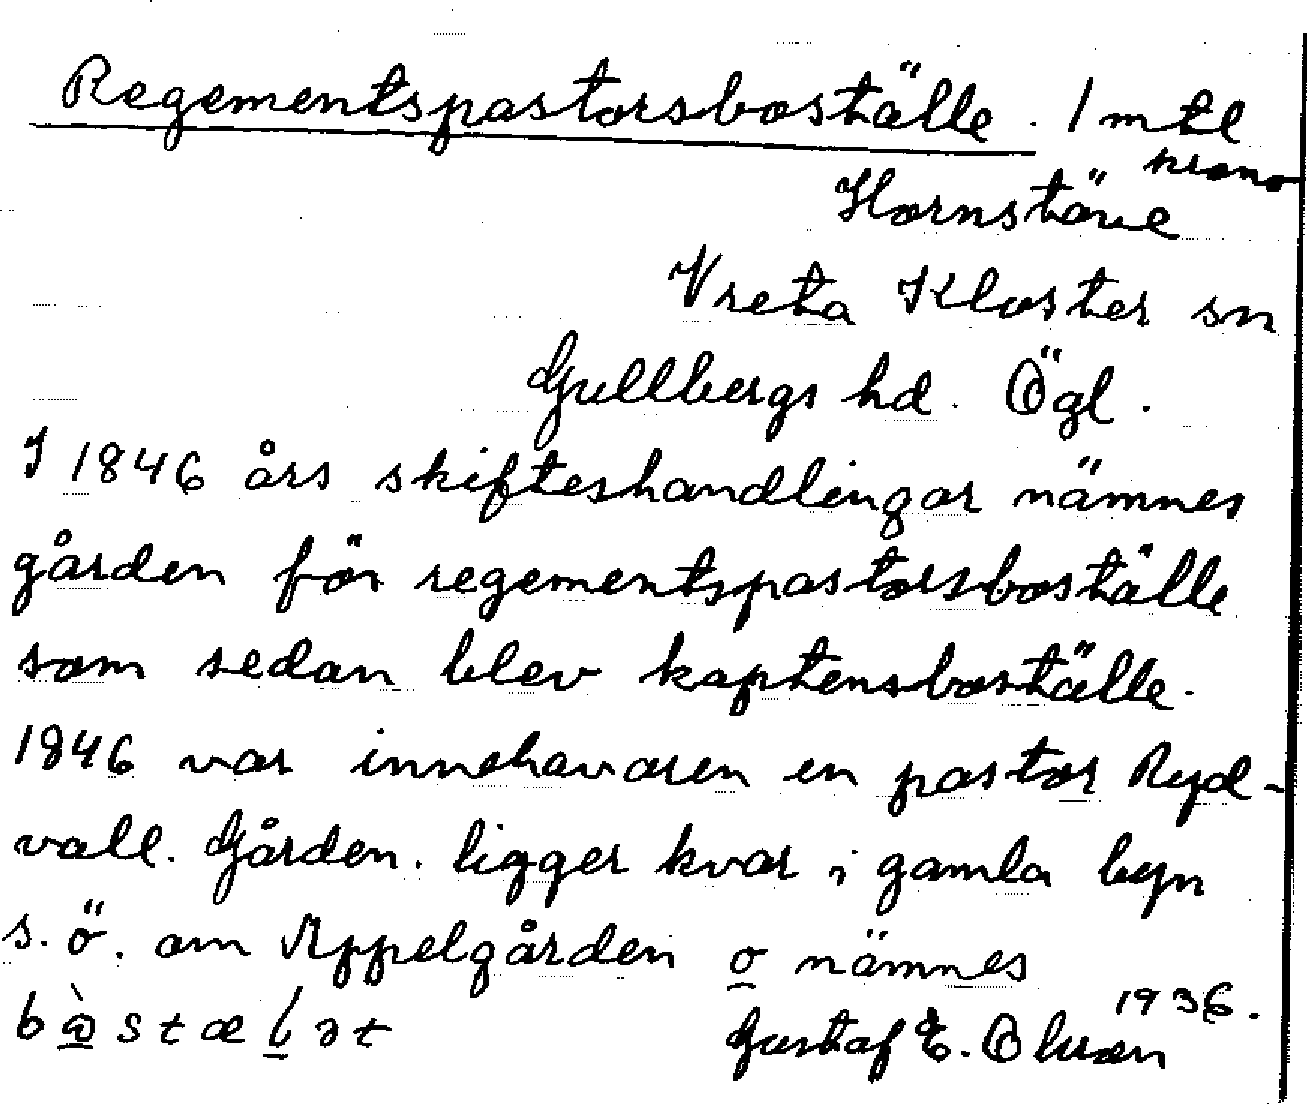 Regementspastorsboställe. 1 mtl
krono
Hornstäve
Vreta Kloster sn
Gullbergs hd. Ögl.
I 1846 års skifteshandlingar nämnes
gården för regementspastorsboställe
som sedan blev kaptensboställe.
1846 var innehavaren en pastor Ryd-
vall. Gården. ligger kvar i gamla byn
s. ö. om Appelgården o nämnes
1936.
Gustaf E. Olsson